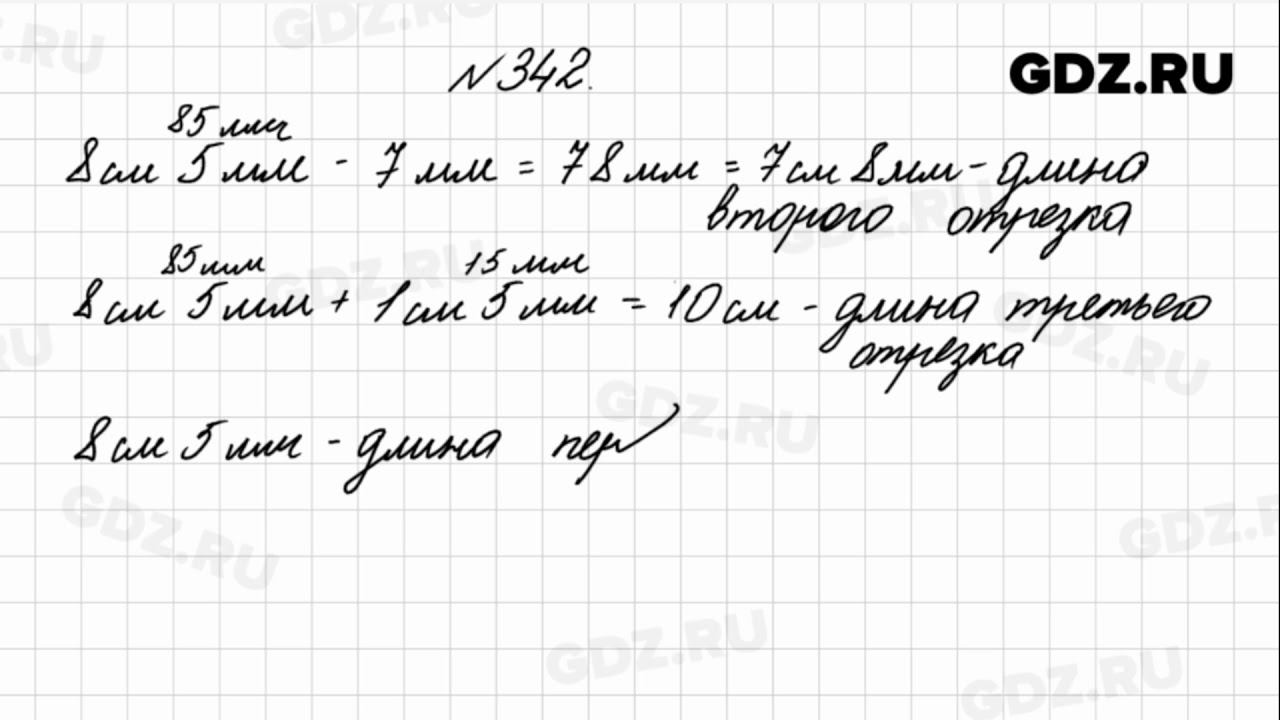 №342.
GDZ.RU
85мм
8см 5мм - 7мм = 78мм = 7см 8мм - длина
второго отрезка
85мм 15мм
8см 5мм + 1см 5мм = 10см - длина третьего
отрезка
8см 5мм - длина пер